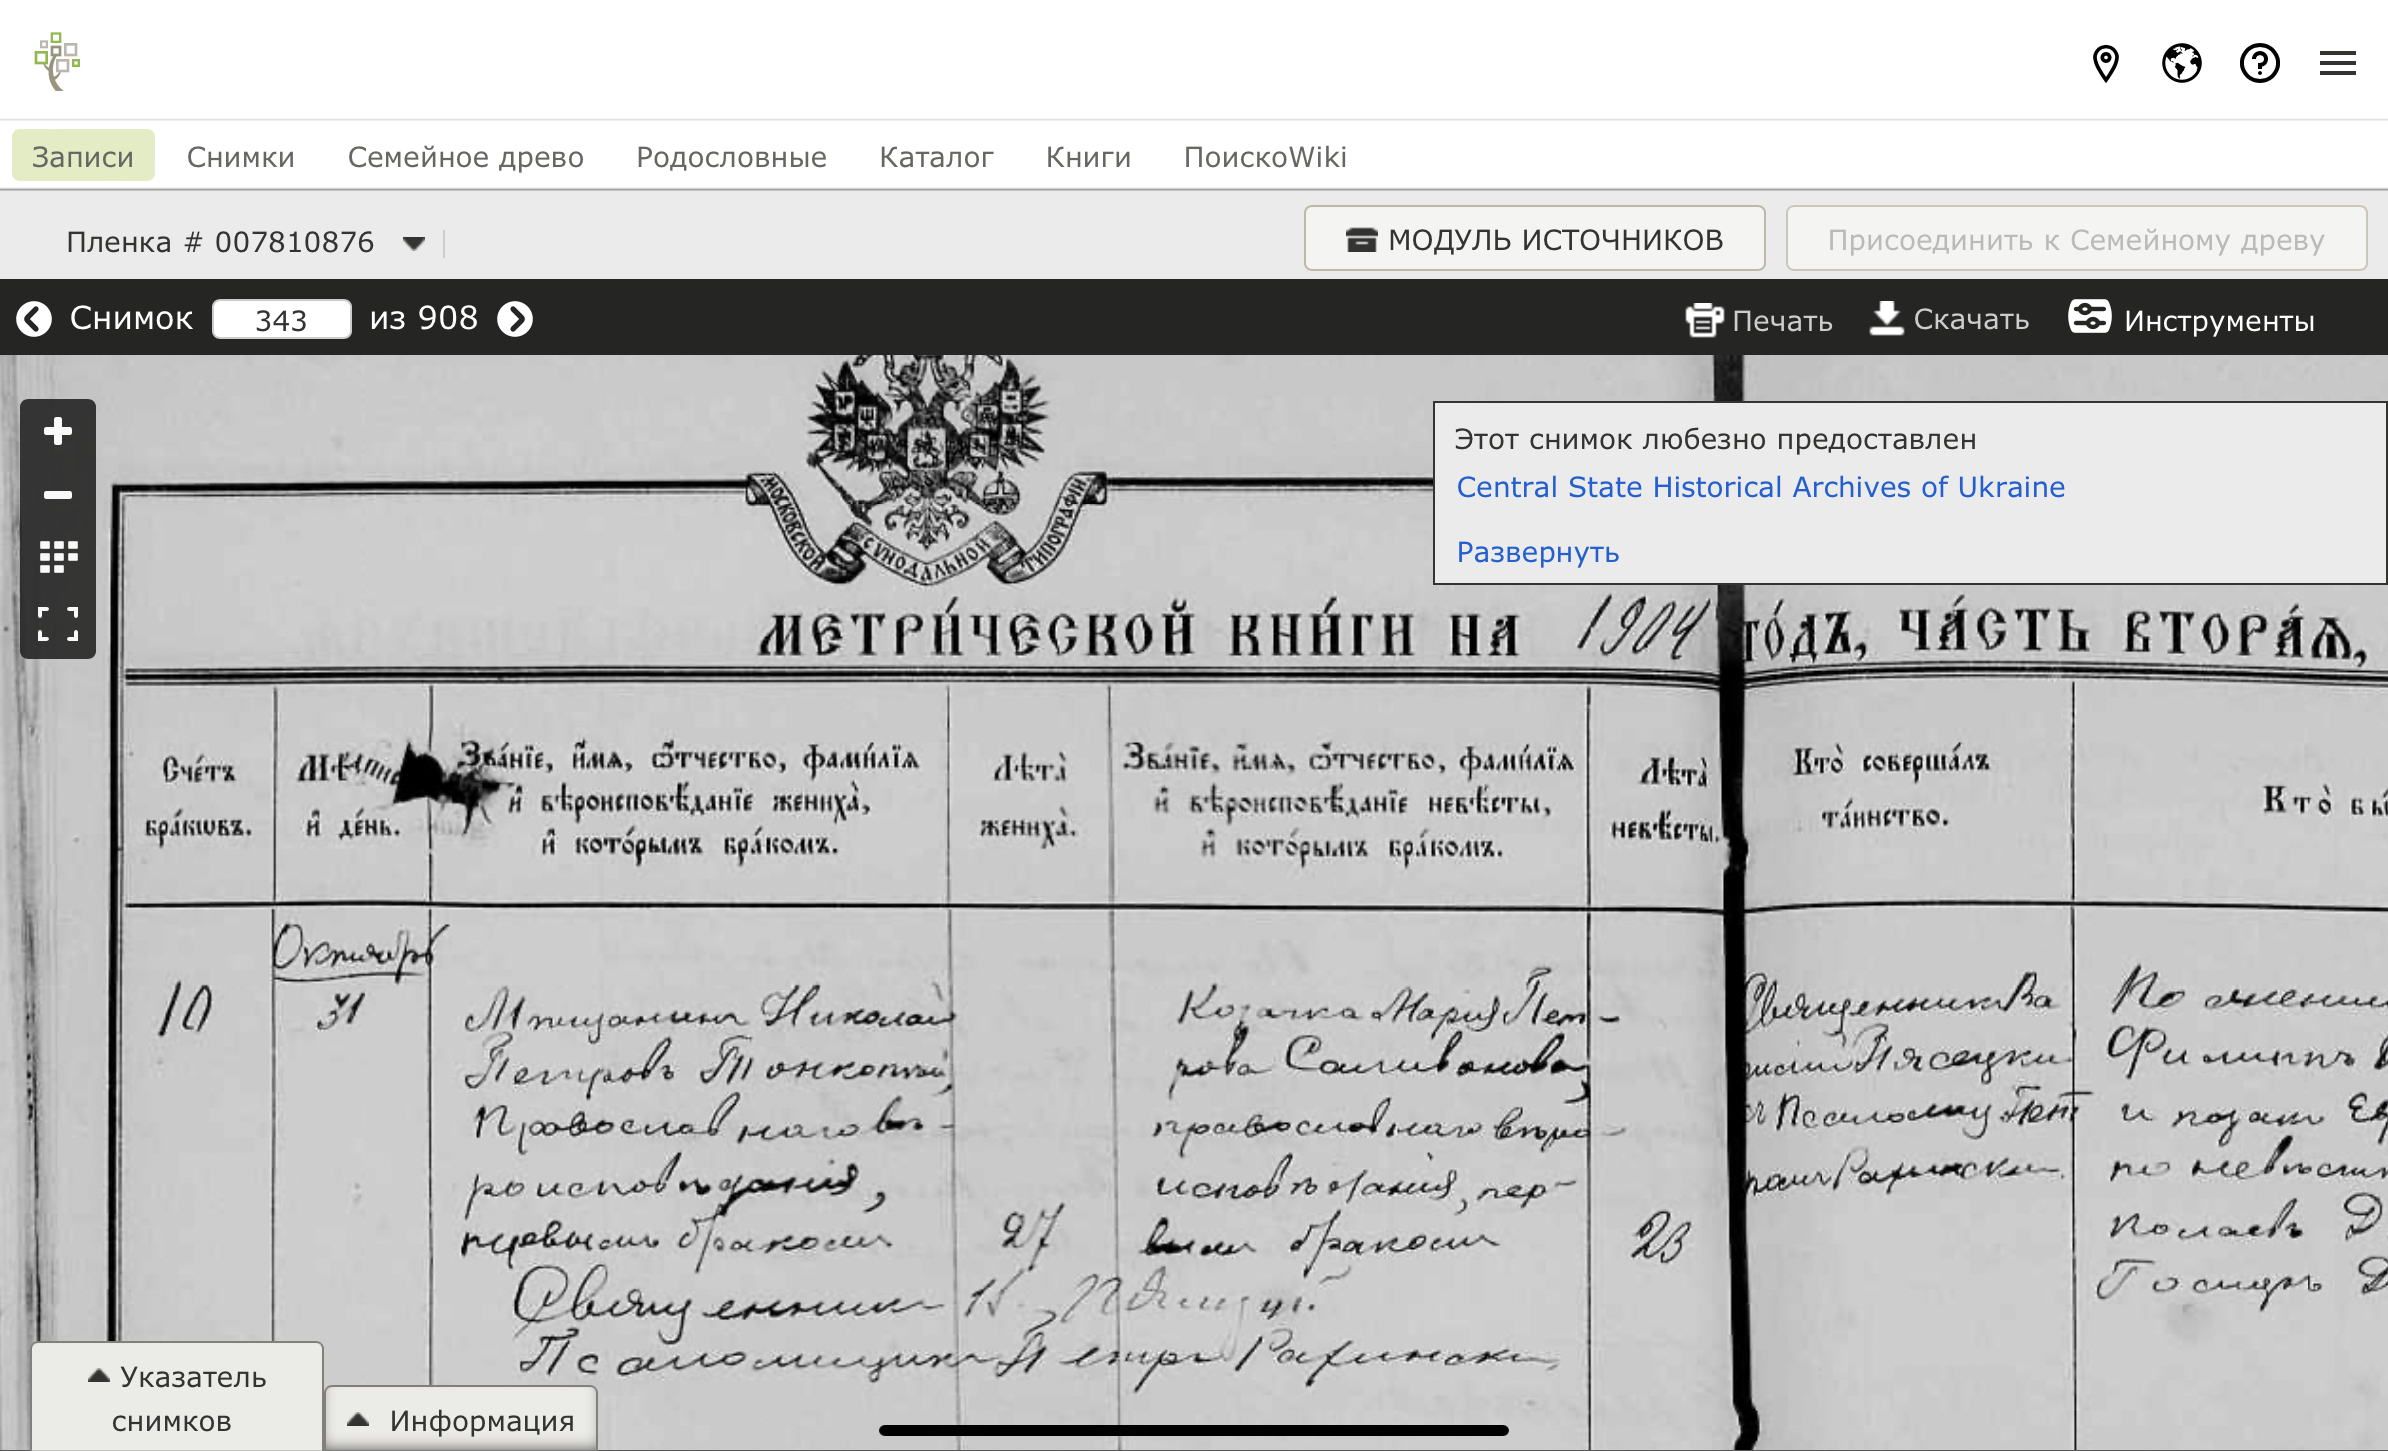 Записи Снимки Семейное древо Родословные Каталог Книги ПоискоWiki
Пленка # 007810876
МОДУЛЬ ИСТОЧНИКОВ
Присоединить к Семейному древу
Снимок 343 из 908
Печать Скачать Инструменты
МОСКОВСКОЙ СУНОДАЛЬНОЙ ТИПОГРАФІИ
Этот снимок любезно предоставлен
Central State Historical Archives of Ukraine
Развернуть
МЕТРИ́ЧЕСКОЙ КНИ́ГИ НА 1904 ГО́ДЪ, ЧА́СТЬ ВТОРА́Ѧ,
Сче́тъ
бра́кѡвъ.
и҆ де́нь.
Зва́нїе, и҆́мѧ, ѻ҆́тчество, фами́лїѧ
и҆ вѣроисповѣ́данїе жениха̀,
и҆ кото́рымъ бра́комъ.
Лѣта̀
жениха̀.
Зва́нїе, и҆́мѧ, ѻ҆́тчество, фами́лїѧ
и҆ вѣроисповѣ́данїе невѣ́сты,
и҆ кото́рымъ бра́комъ.
Лѣта̀
невѣ́сты.
Кто̀ соверша́лъ
та́инство.
Кто̀ бы́
10
Октябрь
31
Мѣщанинъ Николай
Петровъ Тонконогій,
Православнаго вѣ-
роисповѣданія,
первымъ бракомъ
27
Козачка Марія Пет-
рова Саливонова,
православнаго вѣро-
исповѣданія, пер-
вымъ бракомъ
23
Священникъ Ва
силій Пясецкій
съ Псаломщ. Пет
ромъ
По жених
Филиппъ
и козакъ
по невѣст
колаевъ Д
Священникъ В.
Псаломщикъ Петръ
Указатель
снимков
Информация